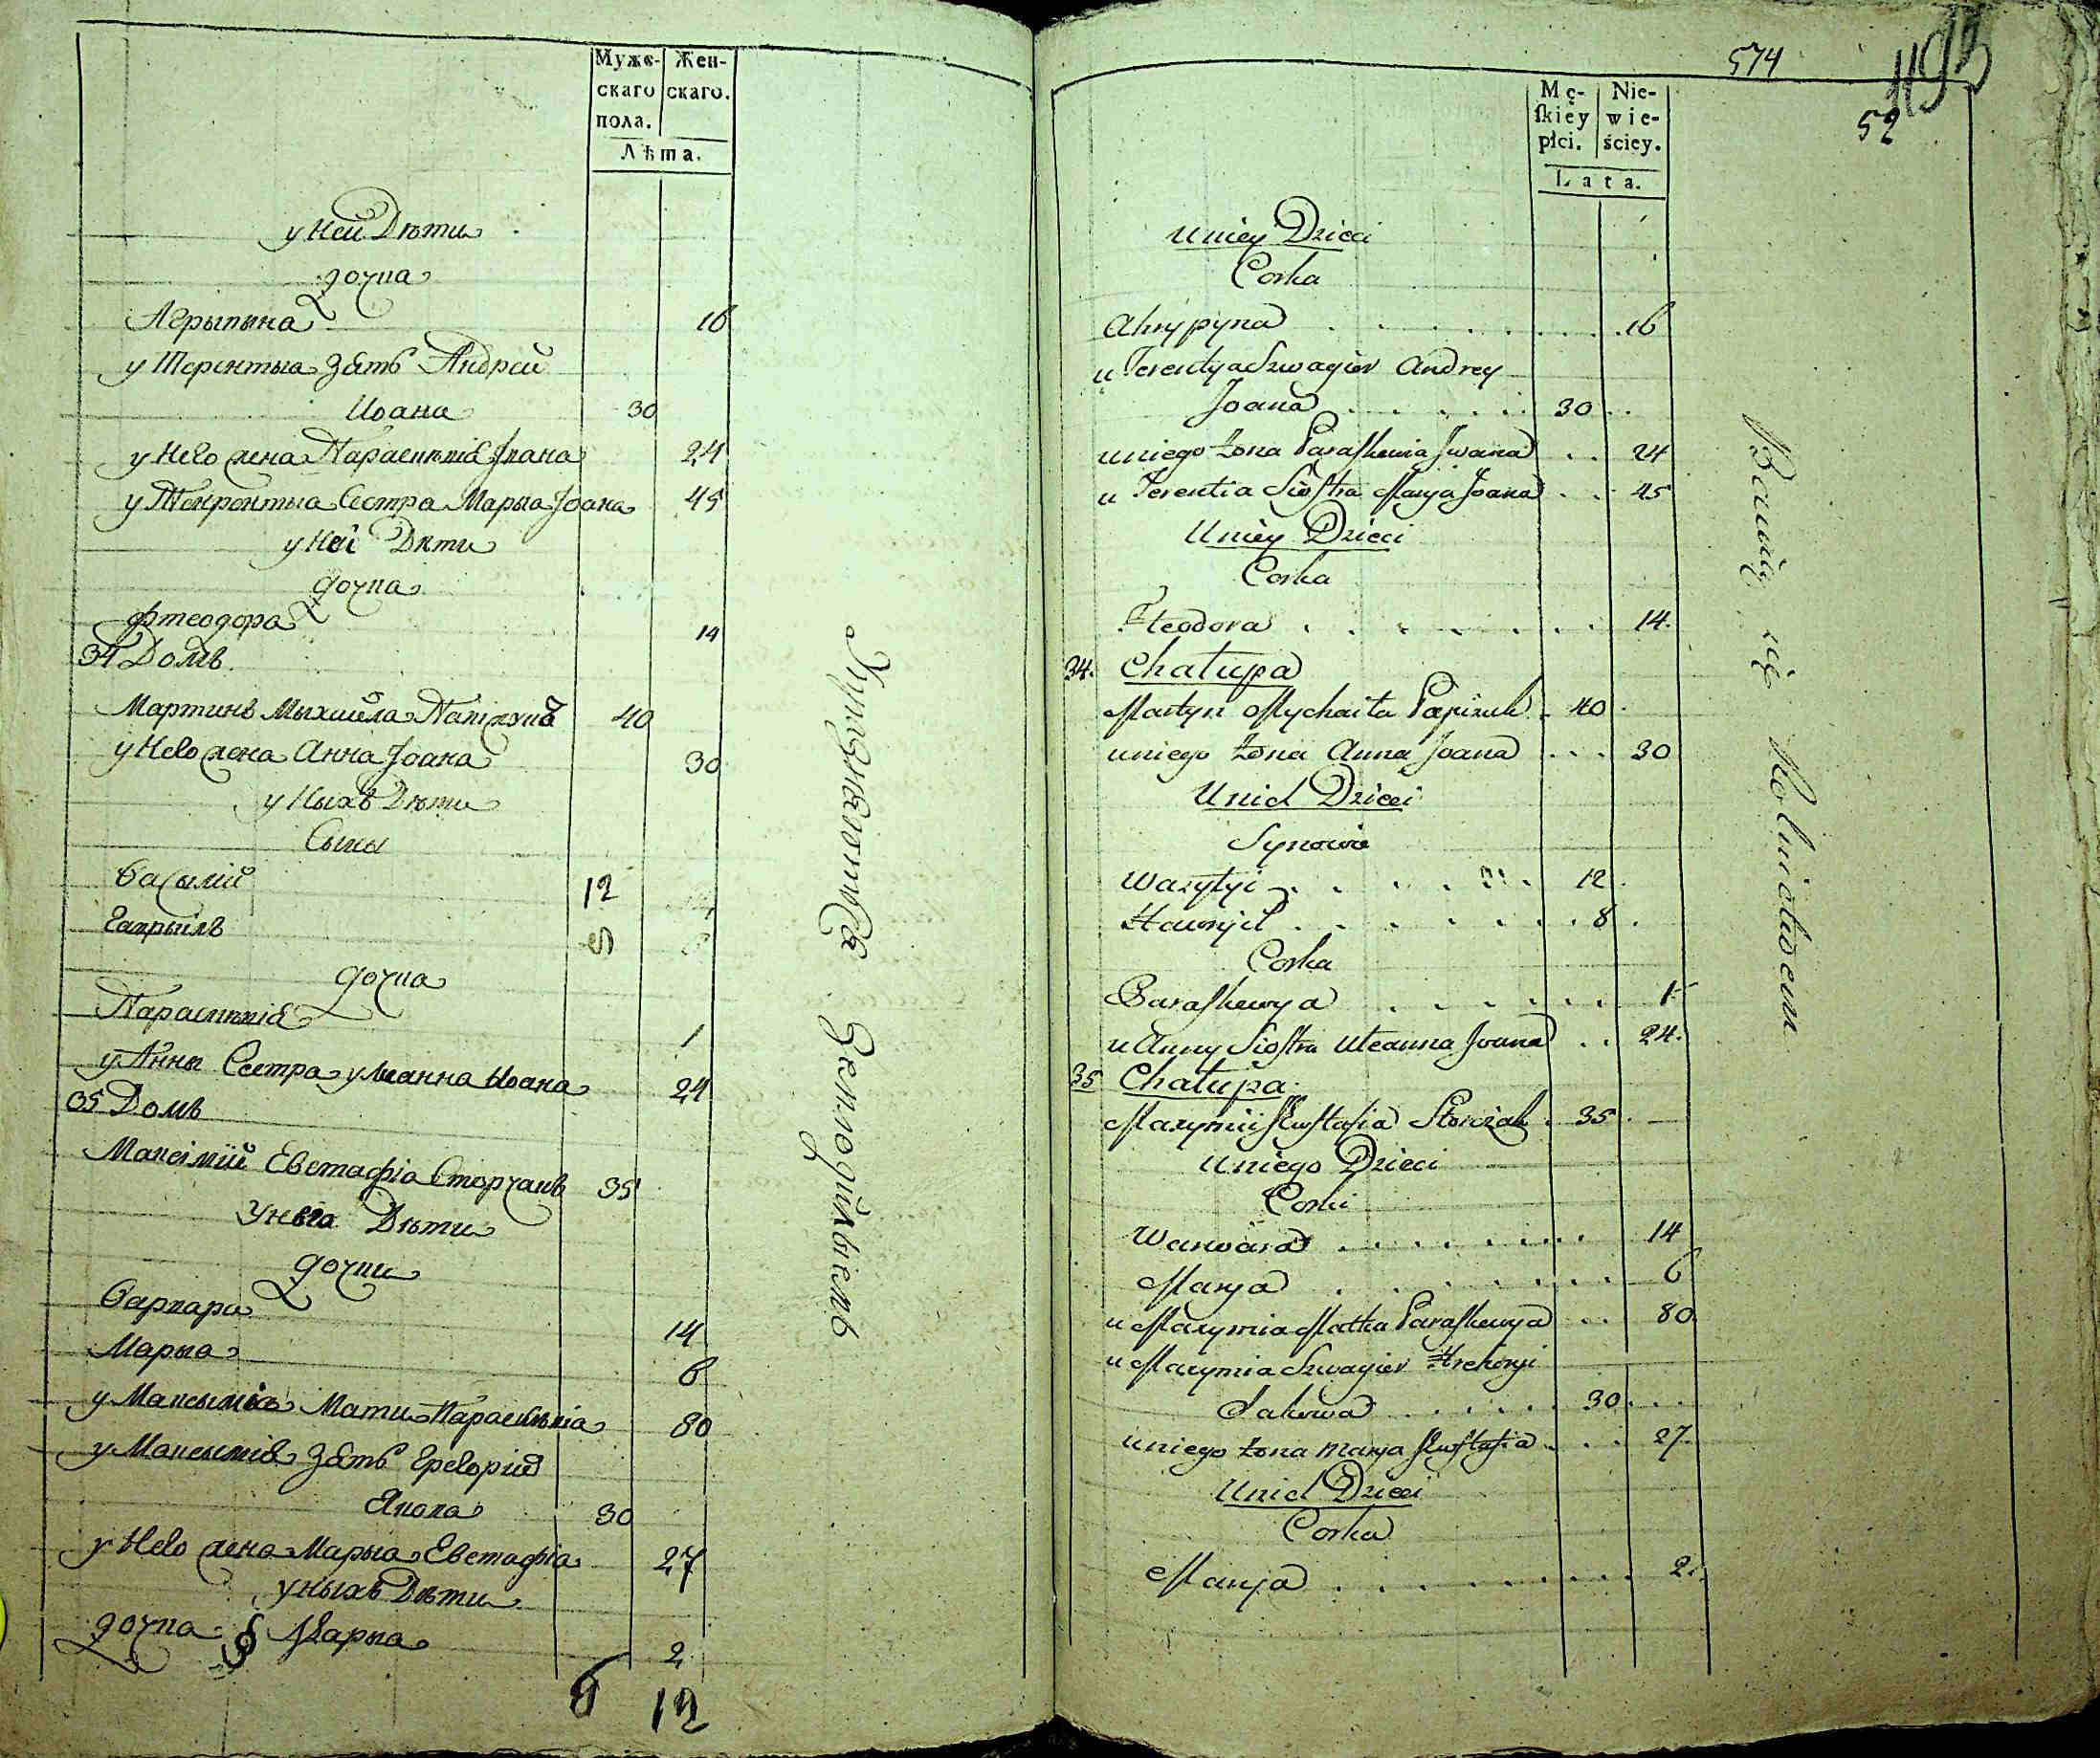 Муже-
скаго
пола.
Жен-
скаго.
Лѣта.
у Ней Дѣти
дочка
Агрыпына 16
у Терентыа Зять Андрей
Иоана 30
у Него жена Параскевія Јвана 24
у Терентыа Сестра Марыа Јоана 45
у Неї Дѣти
дочка
Фтеодора 14
34 Домъ
Мартинъ Мыхайла 40
у Него жена Анна Јоана 30
у Ныхъ Дѣти
Сыны
Василий 12
Гаврыилъ 8
дочка
Параскевія 1
у Анны Сестра Улеанна Иоана 24
35 Домъ
Максімій Евстафіа Сторчакъ 35
У Нѣго Дѣти
дочки
Варвара 14
Марыа 6
у Максыміа Мати Параскевіа 80
у Максыміа Зять Грегорій
Якова 30
у Него жена Марыа Евстафіа 27
у ныхъ Дѣти
дочка Марыа 2
6 12
Упражняются въ Земледѣліемъ
574
493
52
Mę-
ſkiey
płci.
Nie-
wie-
ściey.
Lata.
u niey Dzieci
Corka
Ahrypyna 16
u Terentya Szwagier Andrey
Joana 30
u niego żona Paraſkewia Jwana 24
u Terentia Sioſtra Marya Joana 45
U niey Dzieci
Corka
Fteodora 14.
34. Chałupa
Martyn Mychaiła Papizuk 40
u niego żona Anna Joana 30
U nich Dzieci
Synowie
Wasylyi 12
Hawryił 8
Corka
Paraſkewya 1
u Anny Sioſtra Uleanna Joana 24.
35 Chałupa
Maxymii Ewſtafia Storczak 35
U niego Dzieci
Corki
Warwara 14
Marya 6
u Maxymia Matka Paraſkewya 80.
u Maxymia Szwagier Hrehoryi
Jakowa 30
u niego żona Marya Ewſtafia 27.
U nich Dzieci
Corka
Marya 2.
Bawią się Rolnictwem